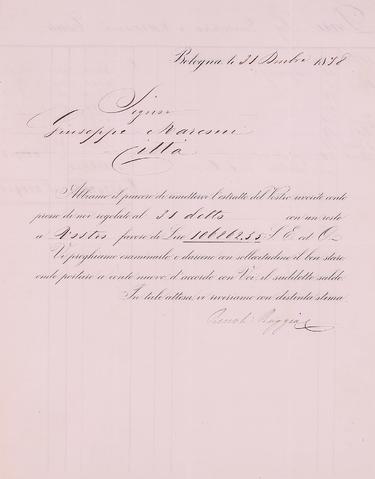 Bologna, le 31 Dembre 1878
Signor
Giuseppe
Città
Abbiamo il piacere di rimettervi l'estratto del Vostro riverito conto
presso di noi regolato al 31 detto con un resto
a Nostro favore di Lire S. E. ed O.
Vi preghiamo esaminarlo e darcene con sollecitudine il ben stare
onde portare a conto nuovo d'accordo con Voi, il suddetto saldo.
In tale attesa, vi riveriamo con distinta stima